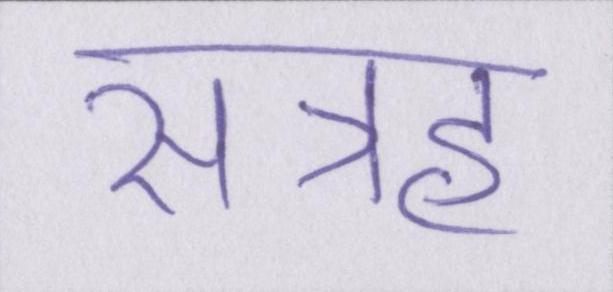 सत्रह